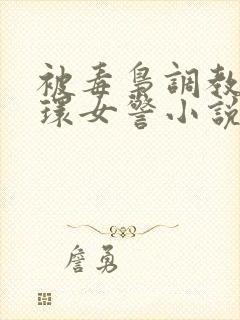 被毒梟調教
環女警小說
詹勇